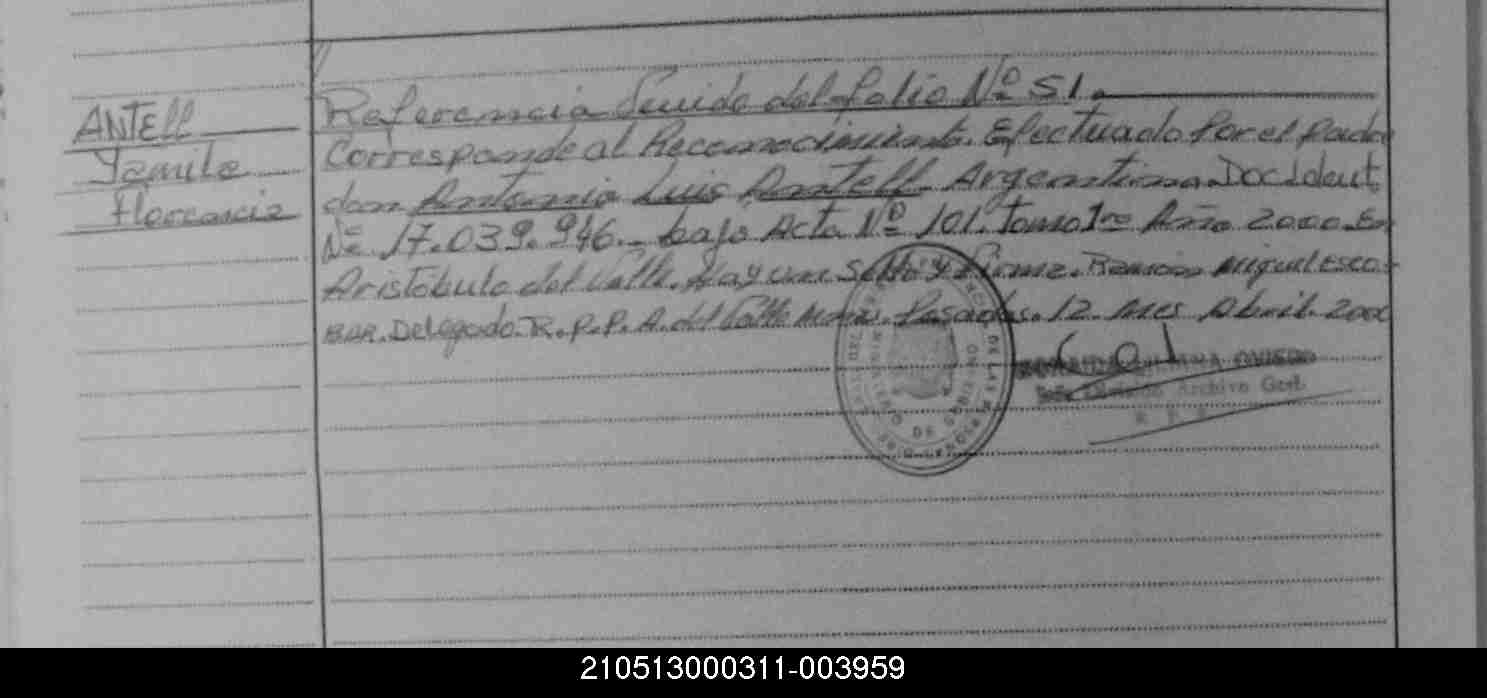 ANTELL
Yamila
Florencia
Referencia Seuido del folio Nº 51.
Corresponde al Reconocimiento. Efectuado Por el padre
don Antonio Luis Antell. Argentino. Doc Ident
Nº 17.039.946. bajo Acta Nº 101. Tomo 1º Año 2000. En
Aristóbulo del Valle. Hay un Sello y Firma. Ramon Miguel Esco-
BAR. Delegado. R.P.P. A. del Valle Mnes. Posadas. 12. Mes Abril. 2000
OVIEDO
División Archivo Gral.
R. P.
DE LAS PERSONAS
DE GOBIERNO
210513000311-003959